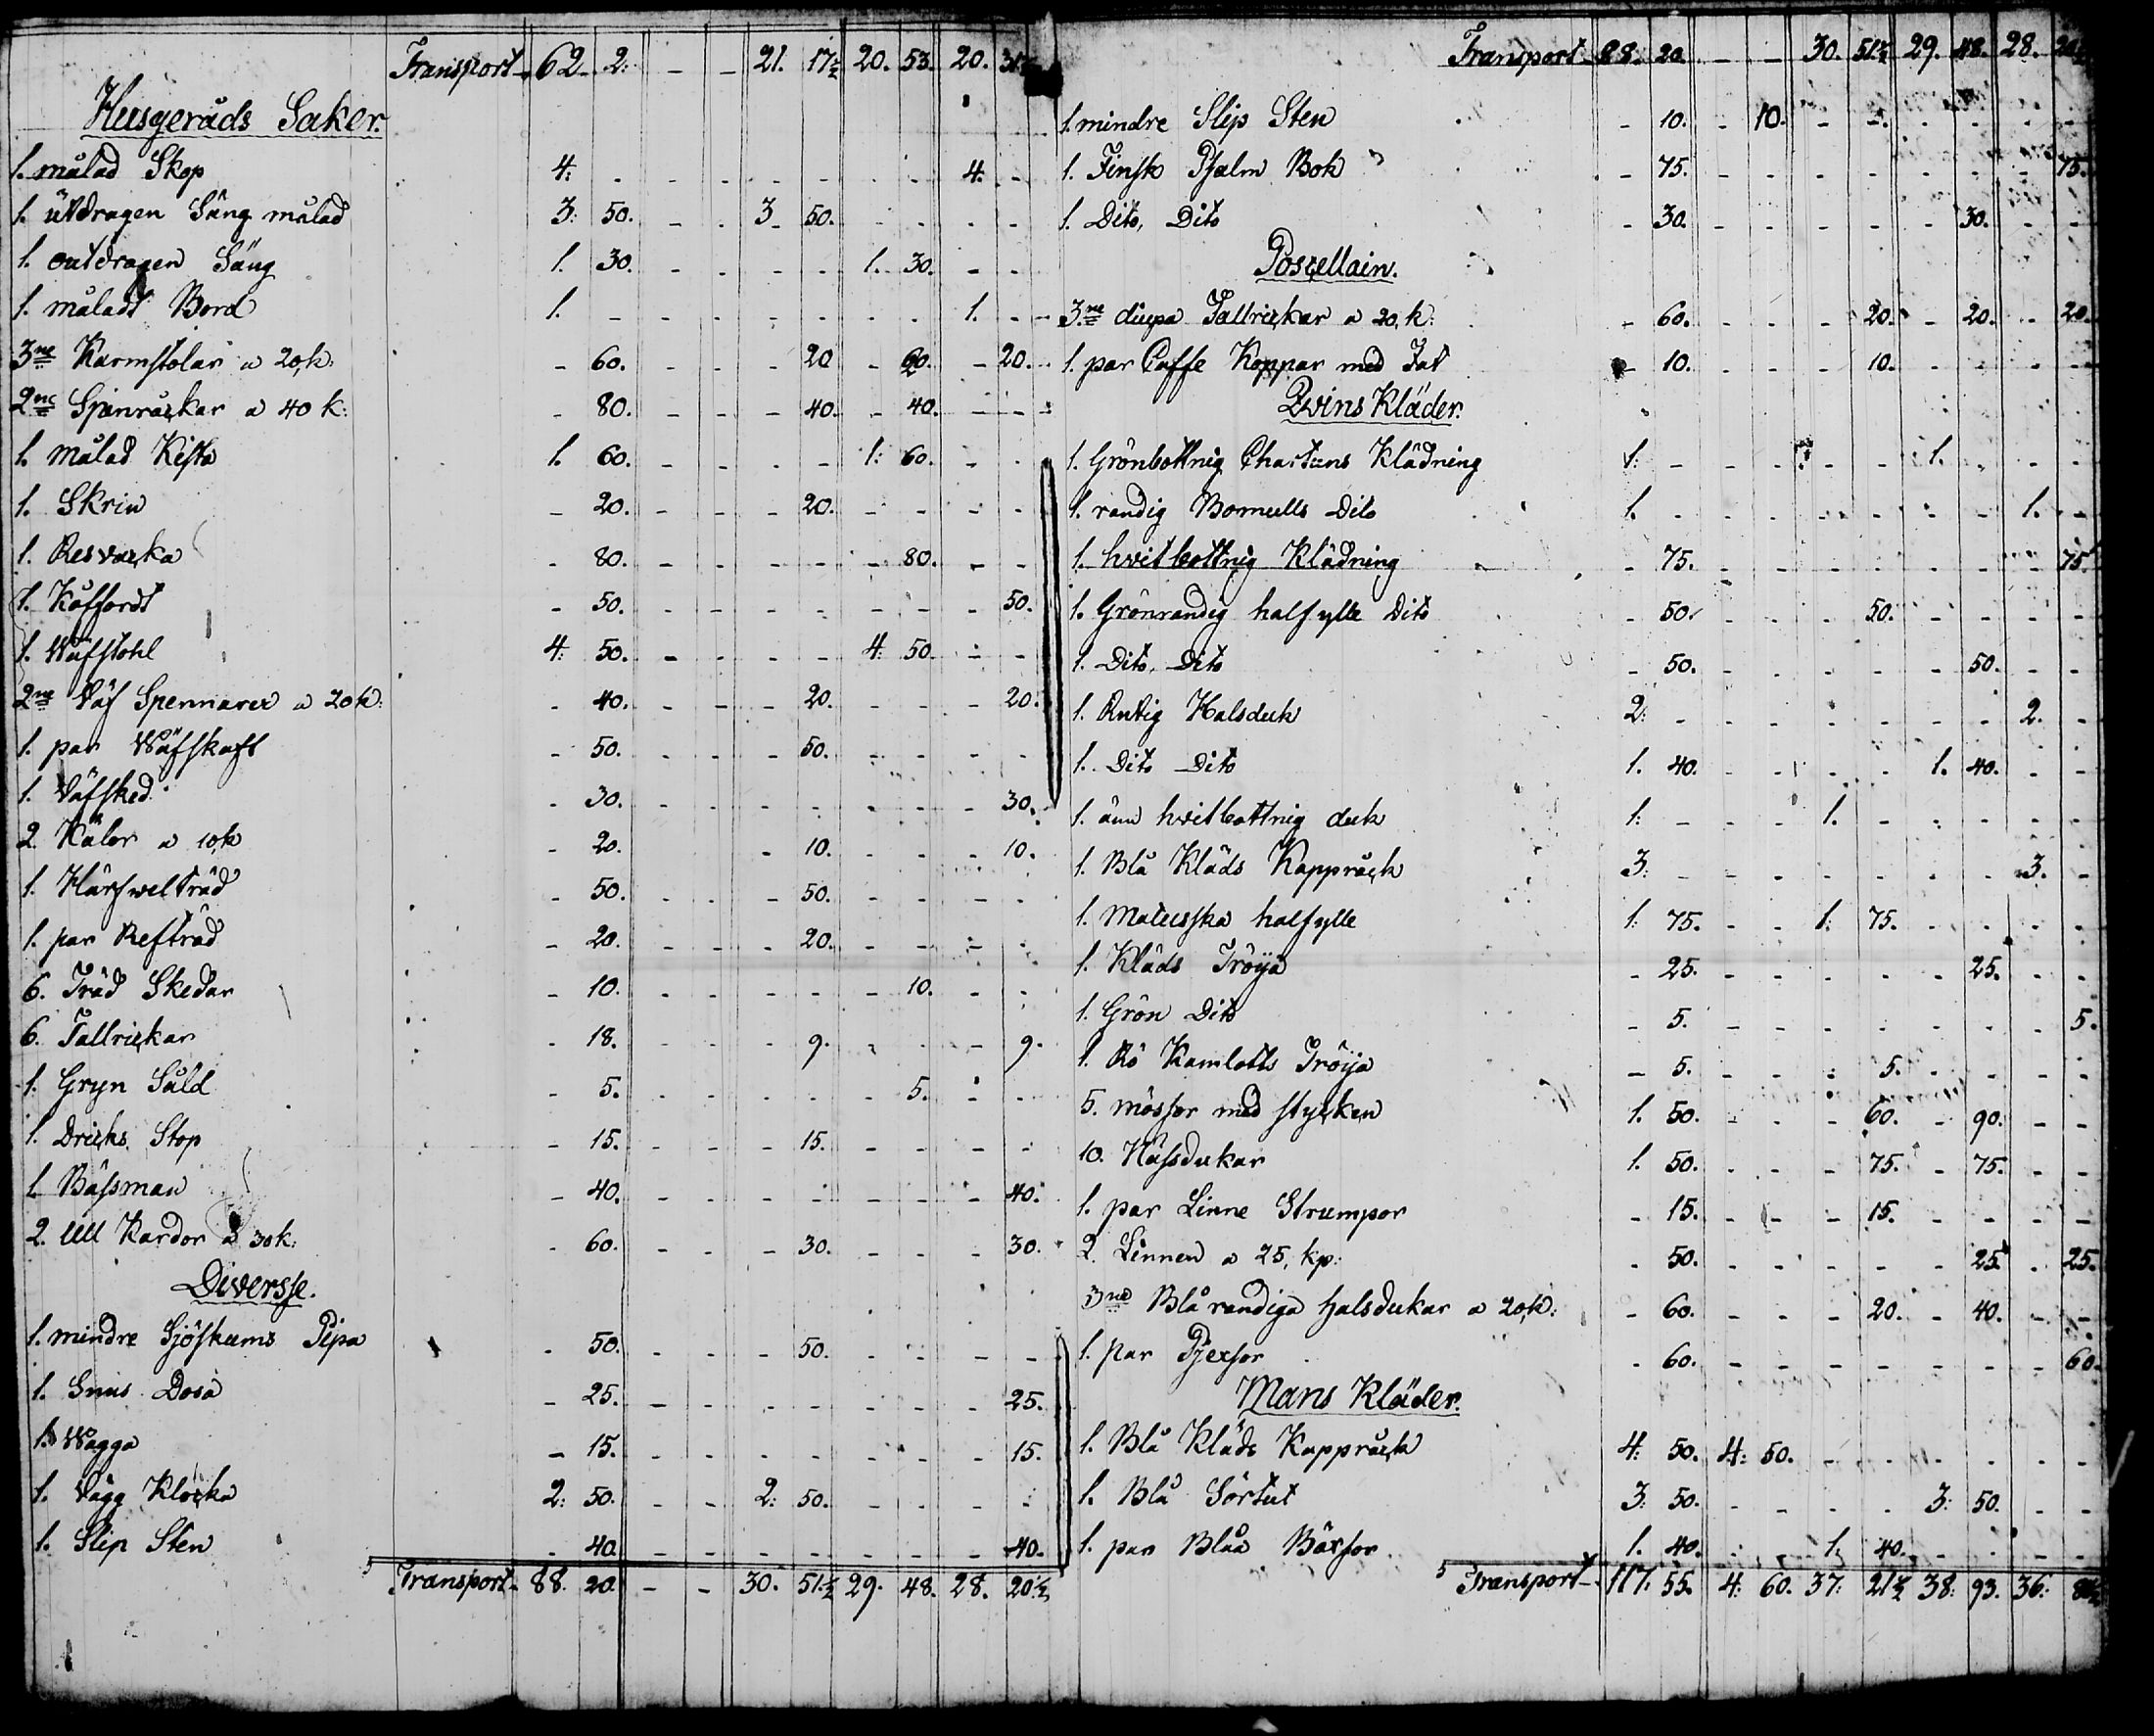 Transport 62. 2. - - 21. 17½ 20. 53. 20. 31½
Husgeråds Saker.
1. målad Skop 4: - - - - - - - 4. -
1. utdragen Säng målad 3: 50. - - 3. 50. - - - -
1. outdragen Säng 1. 30. - - - - 1. 30. - -
1. måladt Bord 1. - - - - - - - 1. -
3ne Karmstolar a 20,k: - 60. - - - 20 - 60. - 20.
2ne Spinråckar a 40 k: - 80. - - - 40. - 40. - -
1. Målad Kista 1. 60. - - - - 1: 60. - -
1. Skrin - 20. - - - 20. - - - -
1. Resväcka - 80. - - - - - 80. - -
1. Koffordt - 50. - - - - - - - 50.
1. Wäfstohl 4: 50. - - - - 4: 50. - -
2ne Väf Spennarer a 20k: - 40. - - - 20. - - - 20.
1. par Wäfskaft - 50. - - - 50. - - - -
1. Väfsked - 30. - - - - - - - 30.
2. Kälor a 10,k - 20. - 10. - - - 10.
1. Härfwelträd - 50. - 50. - - - -
1. par Refträd - 20. - - - 20. - - - -
6. Träd Skedar - 10. - - - - - 10. - -
6. Tallrickar - 18. - - - 9. - - - 9.
1. Gryn Såld - 5. - - - - - 5. - -
1. Dricks Stop - 15. - - - 15. - - - -
1. Bässman - 40. - - - - - - - 40.
2. Ull Kardor a 30k: - 60. - - - 30. - - - 30.
Diversse.
1. mindre Sjöskums Pipa - 50. - - - 50. - - - -
1. Snus Dosa - 25. - - - - - - - 25.
1. Wagga - 15. - - - - - - - 15.
1. Vägg Klocka 2: 50. - - 2: 50. - - - -
1. Slip Sten - 40. - - - - - - - 40.
Transport 88. 20. - - 30. 51½ 29. 48. 28. 20½
Transport 88. 20. - - 30. 51½ 29. 48. 28. 20½
1. mindre Slip Sten - 10. - 10. - - - - - -
1. Finsk Psalm Bok - 75. - - - - - - - 75.
1. Dito, Dito - 30. - - - - - 30. - -
Poscellain.
3ne diupa Tallrickar a 20,k: - 60. - - - 20. - 20. - 20.
1. par Caffe Koppar med Fat - 10. - - - 10. - - - -
Qvins Kläder.
1. Grönbottnig Chartuns Klädning 1: - - - - - 1. - - -
1. randig Bomulls Dito 1. - - - - - - - 1. -
1. hvitbottnig Klädning - 75. - - - - - - - 75.
1. Grönrandig halfylle Dito - 50. - - - 50. - - - -
1. Dito, Dito - 50. - - - - - 50. - -
1. Rutig Halsduk 2: - - - - - - - 2. -
1. Dito Dito 1. 40. - - - - 1. 40. - -
1. änn hvitbottnig duk 1: - - - 1. - - - - -
1. Blå Kläds Kappråck 3: - - - - - - - 3. -
1. Malusska halfylle 1: 75. - - 1: 75. - - - -
1. Kläds Tröija - 25. - - - - - 25. - -
1. Grön Dito - 5. - - - - - - - 5.
1. Rö Kamlotts Tröija - 5. - - - 5. - - - -
5. mössor med stycken 1. 50. - - - 60. - 90. - -
10. Näsdukar 1. 50. - - - 75. - 75. - -
1. par Linne Strumpor - 15. - - - 15. - - - -
2. Linnen a 25, kp: - 50. - - - - - 25. - 25.
3ne Blå randiga halsdukar a 20,k: - 60. - - - 20. - 40. - -
1. par Pjexsor - 60. - - - - - - - 60.
Mans Kläder.
1. Blå Kläds Kappråck 4: 50. 4: 50. - - - - - -
1. Blå Sörtut 3: 50. - - - - 3: 50. - -
1. par Blåa Böxsor 1. 40. - - 1. 40. - - - -
Transport 117. 55. 4: 60. 37: 21½ 38: 93. 36: